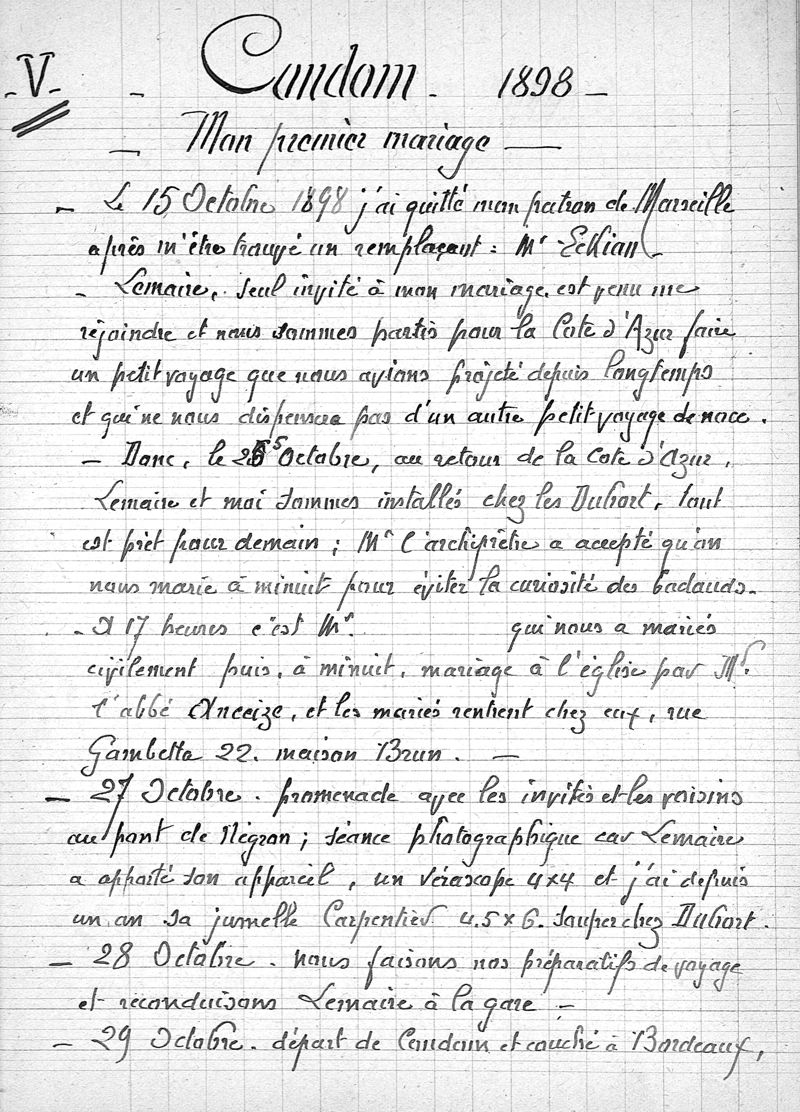 - V - - Condom - 1898 -
- Mon premier mariage -
- Le 15 Octobre 1898 j'ai quitté mon patron de Marseille
après m'être trouvé un remplaçant : Mr Eckian -
- Lemaire, seul invité à mon mariage, est venu me
rejoindre et nous sommes partis pour la Cote d'Azur faire
un petit voyage que nous avions projeté depuis longtemps
et qui ne nous dispensera pas d'un autre petit voyage de noce.
- Donc, le 25 Octobre, au retour de la Cote d'Azur,
Lemaire et moi sommes installés chez les Dubort, tout
est prêt pour demain ; Mr l'archiprêtre a accepté qu'on
nous marie à minuit pour éviter la curiosité des badauds -
- A 17 heures c'est Mr. qui nous a mariés
civilement puis, à minuit, mariage à l'église par Mr.
l'abbé Anceize, et les mariés rentrent chez eux, rue
Gambetta 22. maison Brun. -
- 27 Octobre. promenade avec les invités et les voisins
au pont de Négron ; séance photographique car Lemaire
a apporté son appareil, un vérascope 4x4 et j'ai depuis
un an sa jumelle Carpentier 4.5 x 6. souper chez Dubort.
- 28 Octobre. nous faisons nos préparatifs de voyage
et reconduisons Lemaire à la gare -
- 29 Octobre. départ de Condom et couché à Bordeaux,